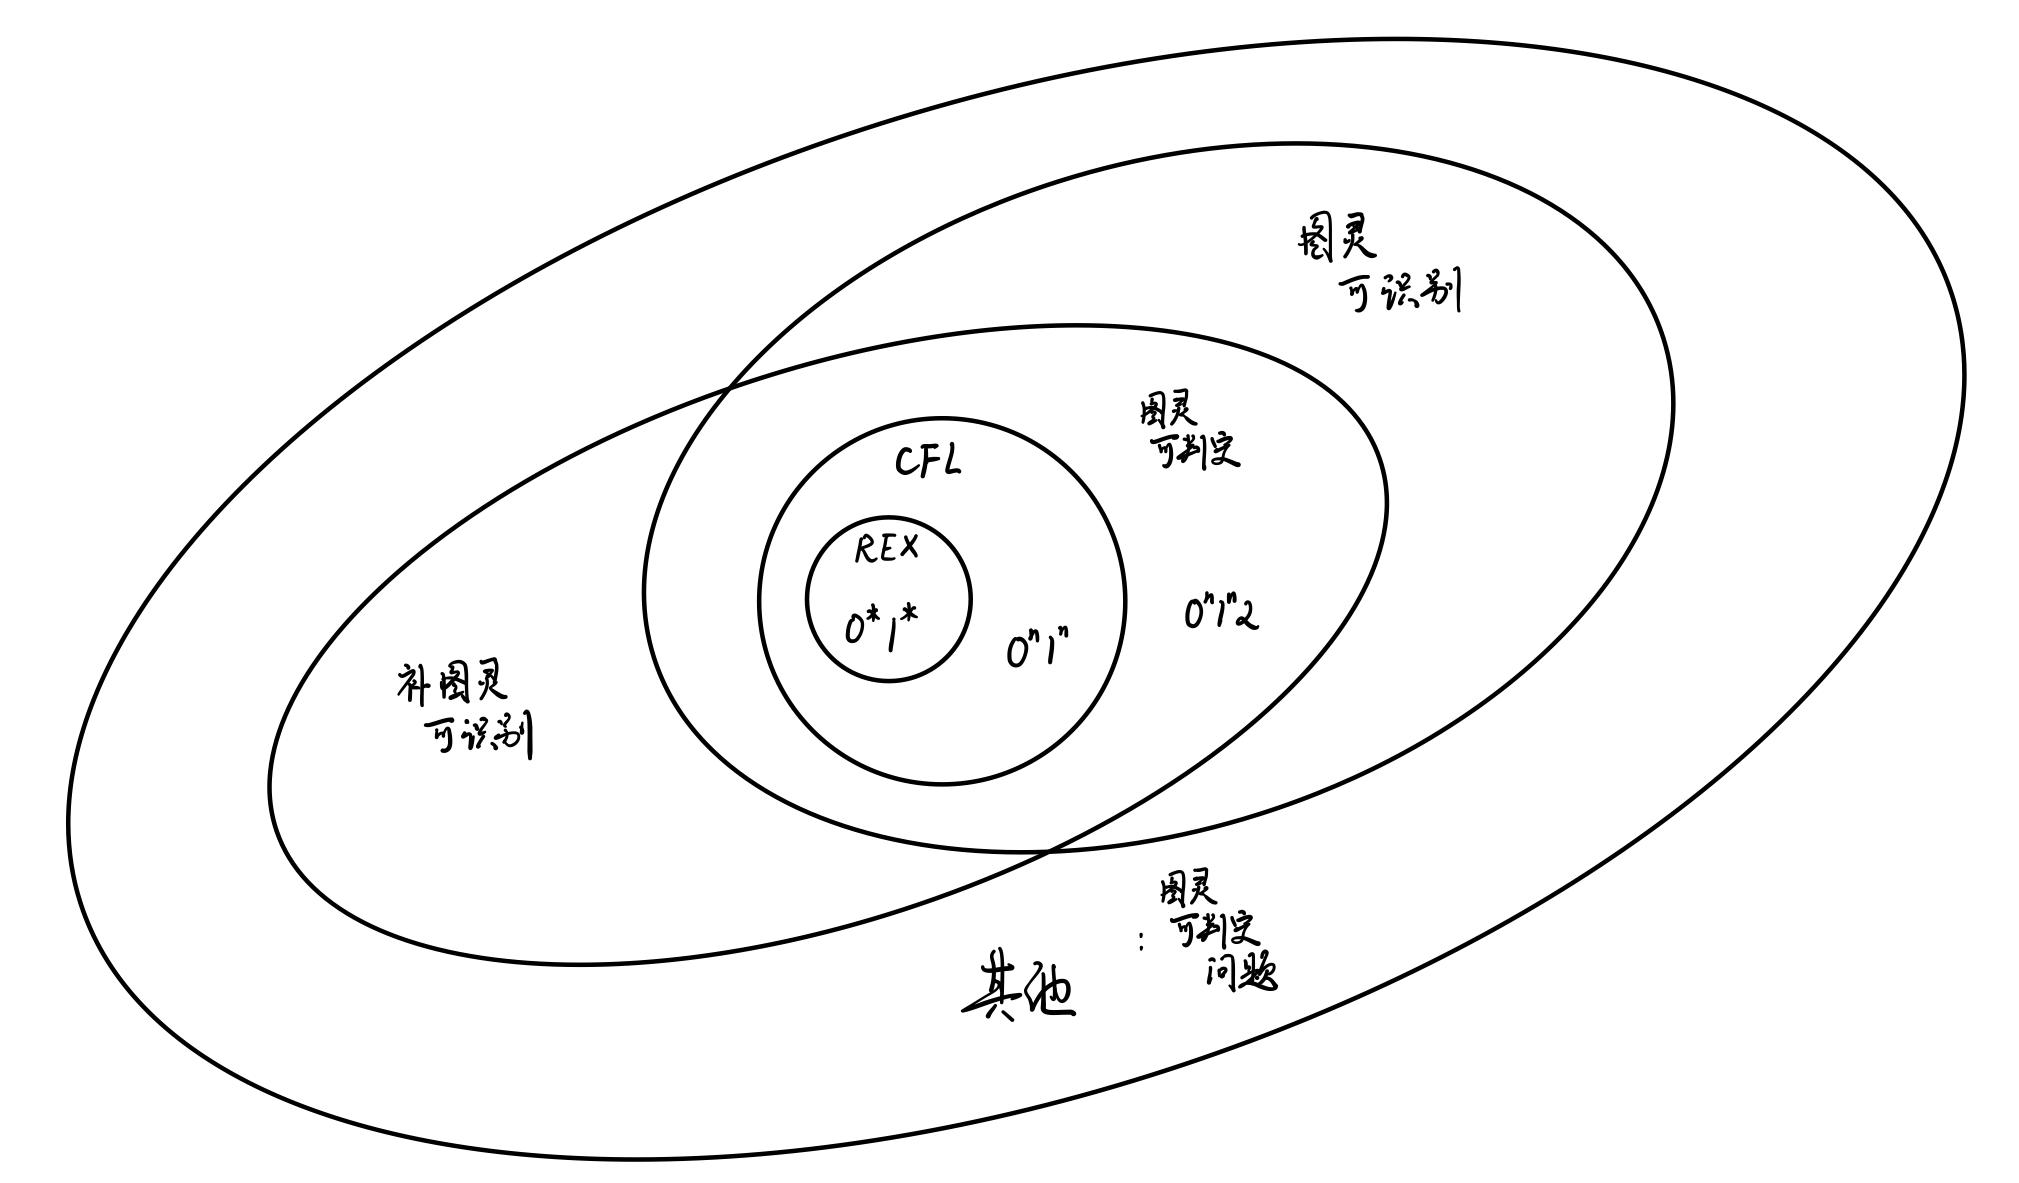 图灵
可识别
图灵
可判定
CFL
REX
0*1*
0ⁿ1ⁿ
0ⁿ1ⁿ2
补图灵
可识别
其他
:
图灵
可判定
问题